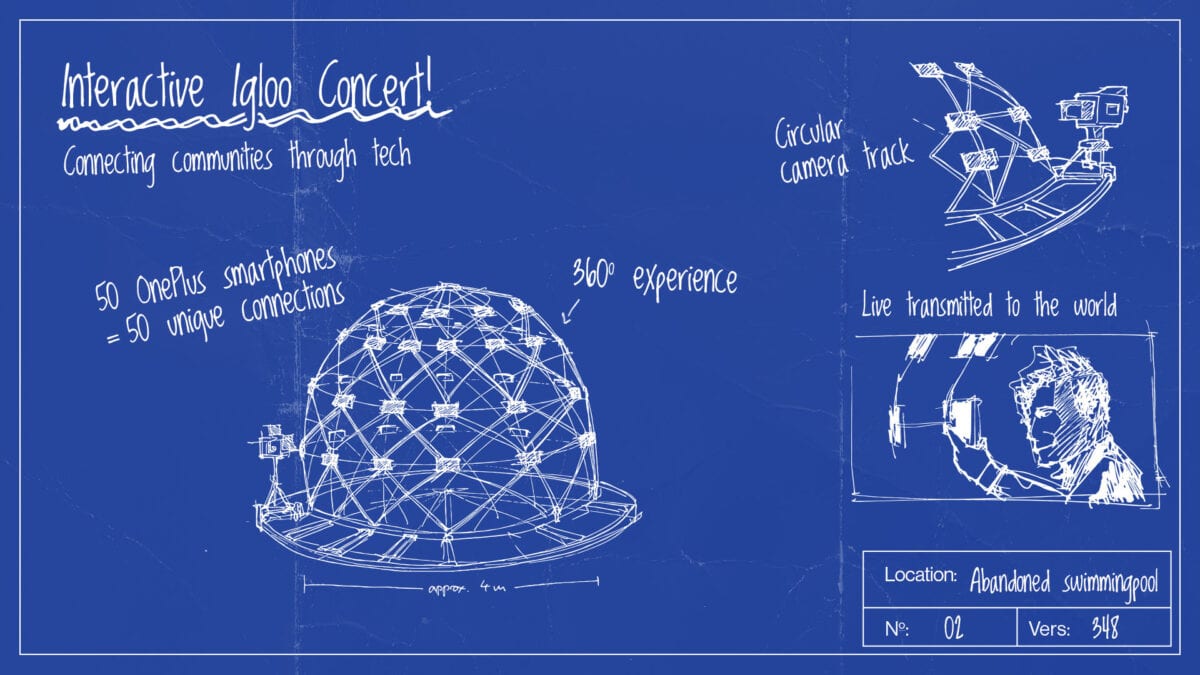 Interactive Igloo Concert!
Connecting communities through tech
50 OnePlus smartphones
= 50 unique connections
360° experience
approx. 4m
Circular
camera track
Live transmitted to the world
Location: Abandoned swimmingpool
Nº: 02
Vers: 348